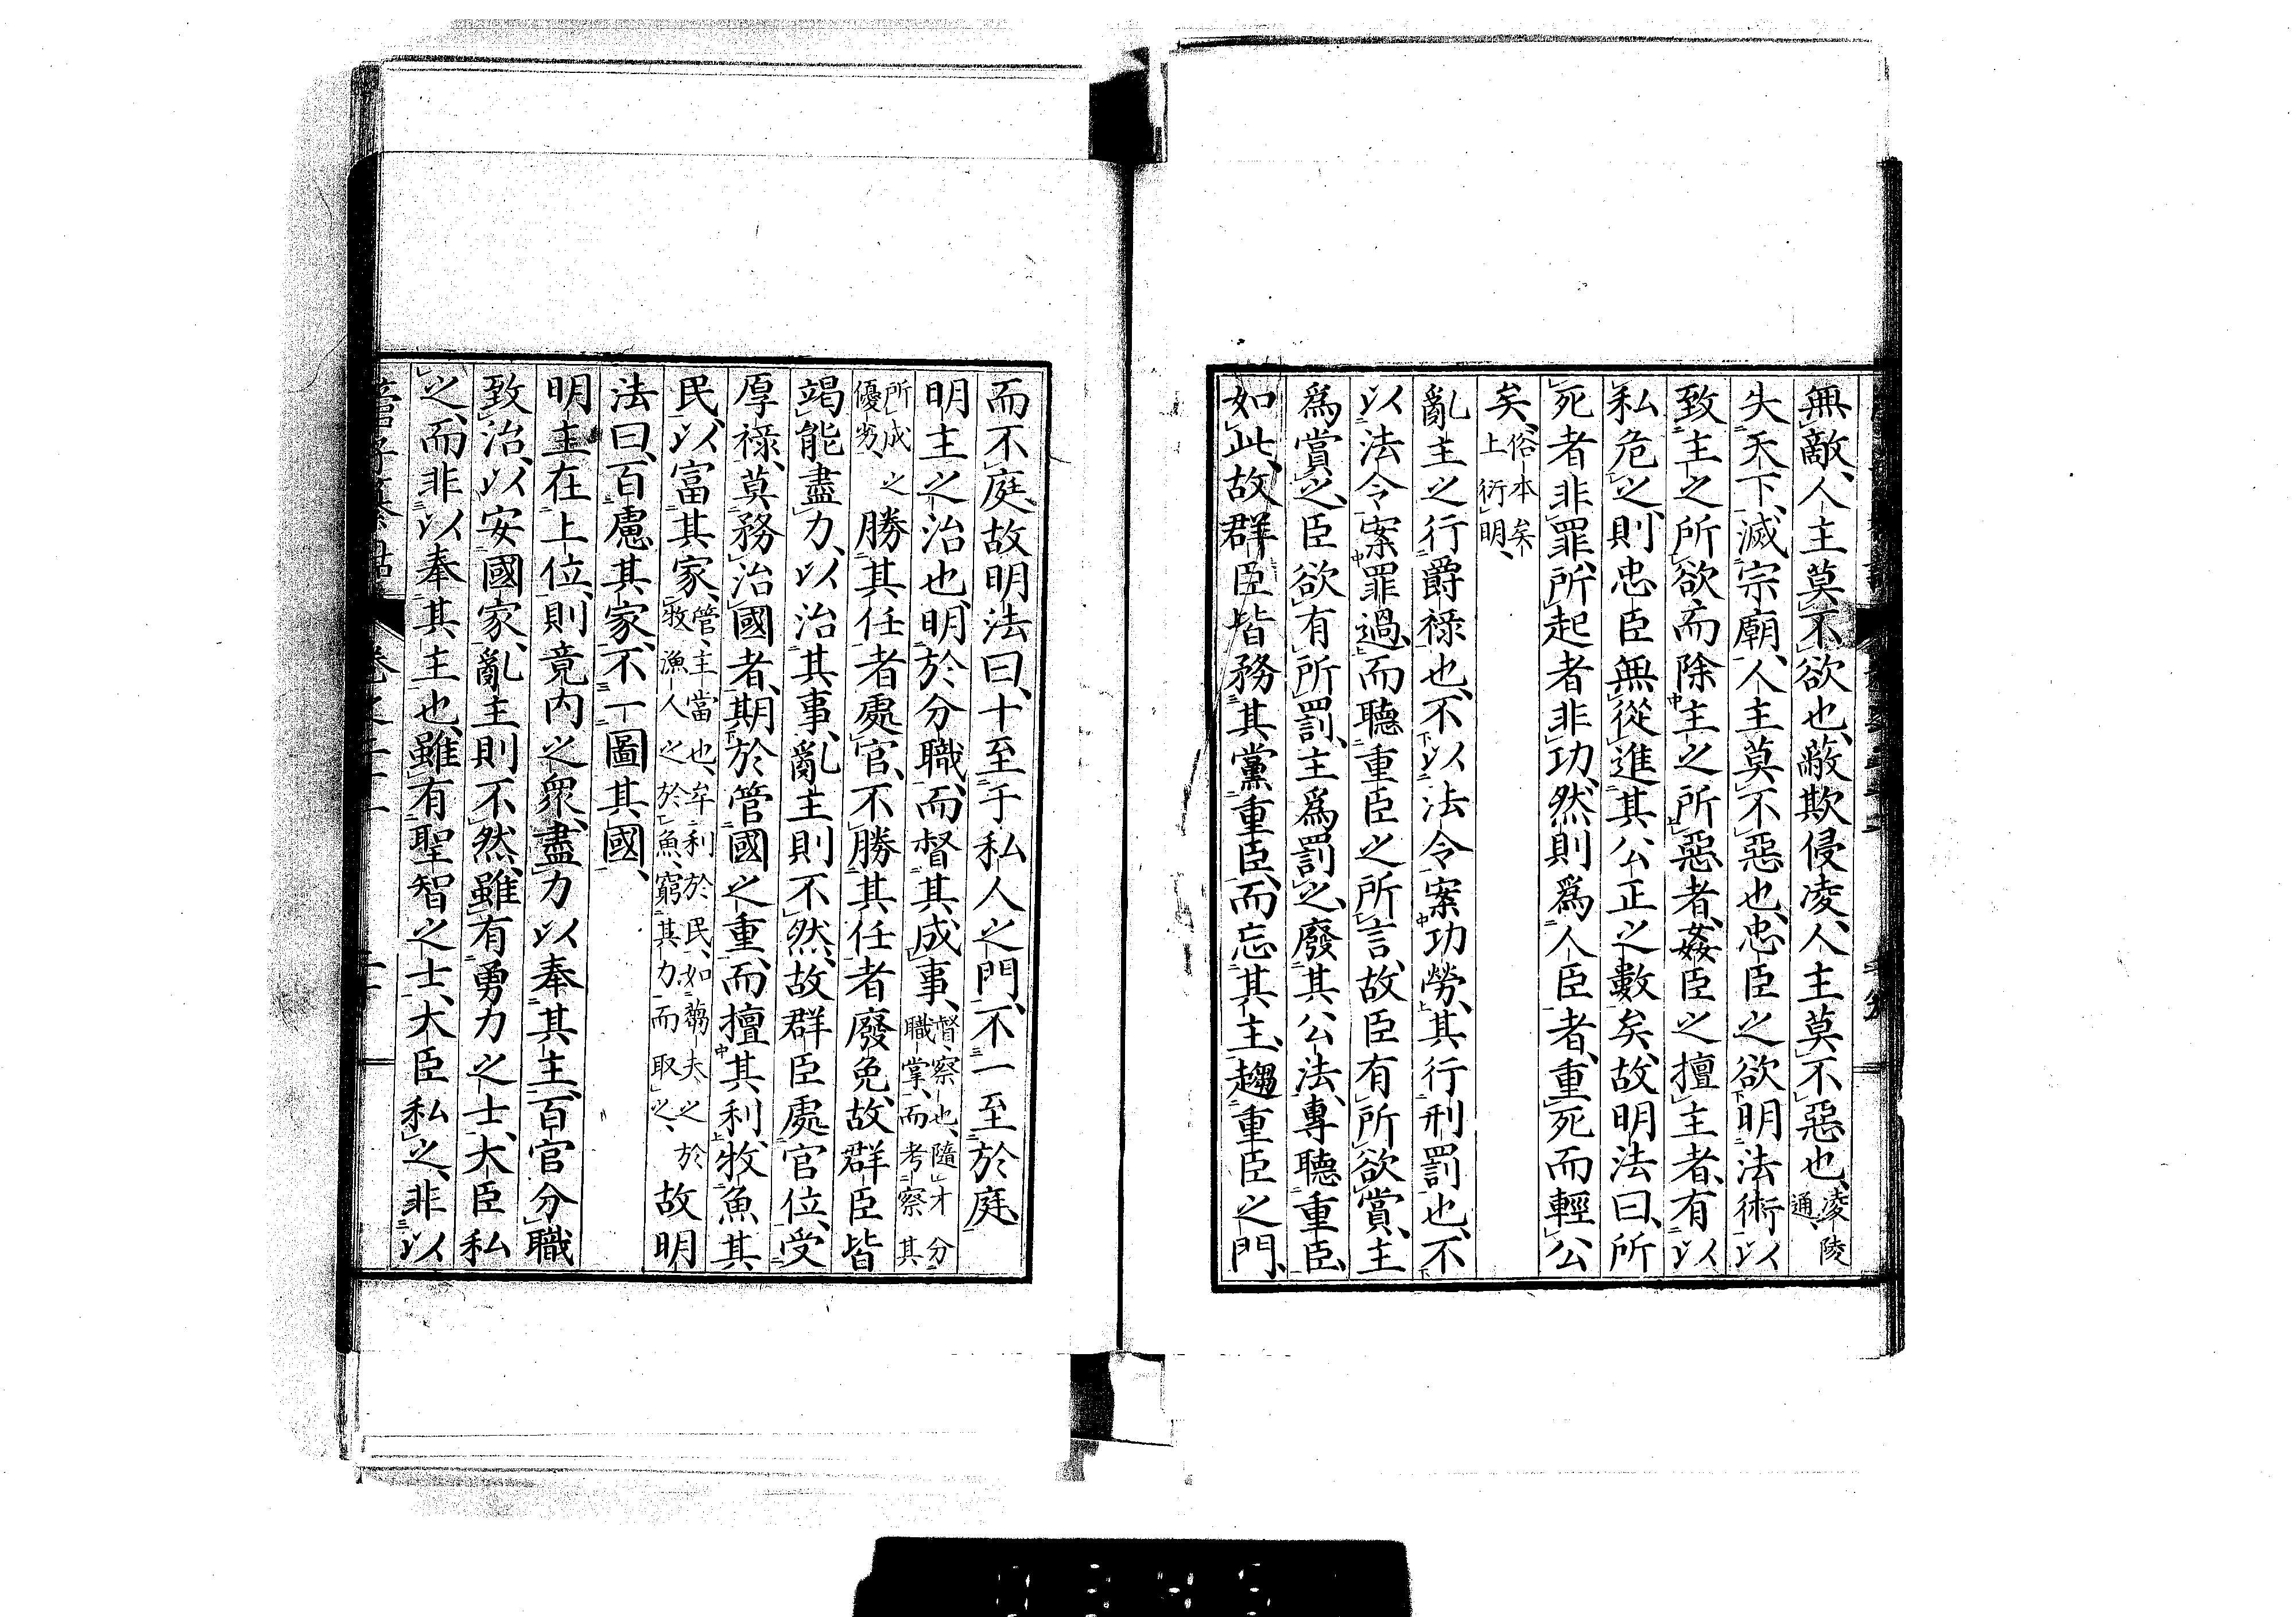 無敵、人主莫不欲也、蔽欺侵凌、人主莫不惡也、凌陵通、
失天下、滅宗廟、人主莫不惡也、忠臣之欲明法術以
致主之所欲而除主之所惡者、姦臣之擅主者、有以
私危之、則忠臣無從進其公正之數矣、故明法曰、所
死者非罪、所起者非功、然則爲人臣者、重死而輕公
矣、俗本矣上衍明、
亂主之行爵祿也、不以法令案功勞、其行刑罰也、不
以法令案罪過、而聽重臣之所言、故臣有所欲賞、主
爲賞之、臣欲有所罰、主爲罰之、廢其公法、專聽重臣、
如此、故群臣皆務其黨重臣、而忘其主、趨重臣之門、
而不庭、故明法曰、十至于私人之門、不一至於庭、
明主之治也、明於分職、而督其成事、督、察也、隨才分職掌、而考察其
所成之優劣、勝其任者處官、不勝其任者廢免、故群臣皆
竭能盡力、以治其事、亂主則不然、故群臣處官位、受
厚祿、莫務治國者、期於管國之重、而擅其利、牧魚其
民、以富其家、管、主當也、牟利於民、如芻夫之於牧漁人之於魚、窮其力而取之、故明
法曰、百慮其家、不一圖其國、
明主在上位、則竟内之衆、盡力以奉其主、百官分職
致治、以安國家、亂主則不然、雖有勇力之士、大臣私
之、而非以奉其主也、雖有聖智之士、大臣私之、非以